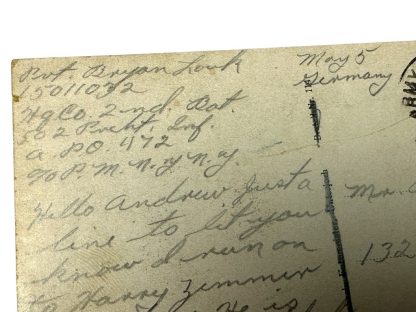 Pvt. Bryan Louk
15011032
Hq Co. 2nd. Bat.
502 Pracht. Inf.
A.P.O. 472
% P.M. N.Y. N.Y.
May 5
Germany
ARMY
Hello Andrew Just a
line to let you
know I run on
to Harry Zimmer
He is
Mr.
132